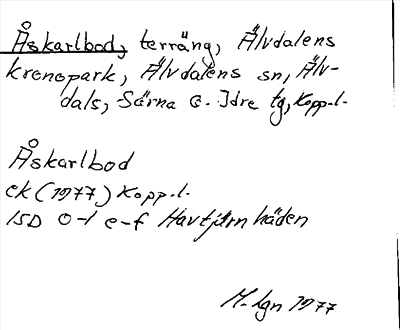 Åskarlbod, terräng, Älvdalens
kronopark, Älvdalens sn, Älv-
dals, Särna o. Idre tg, Kopp.l.
Åskarlbod
ek (1977) Kopp.l.
15D 0-1 e-f Havtjärnhäden
M-lgn 1977